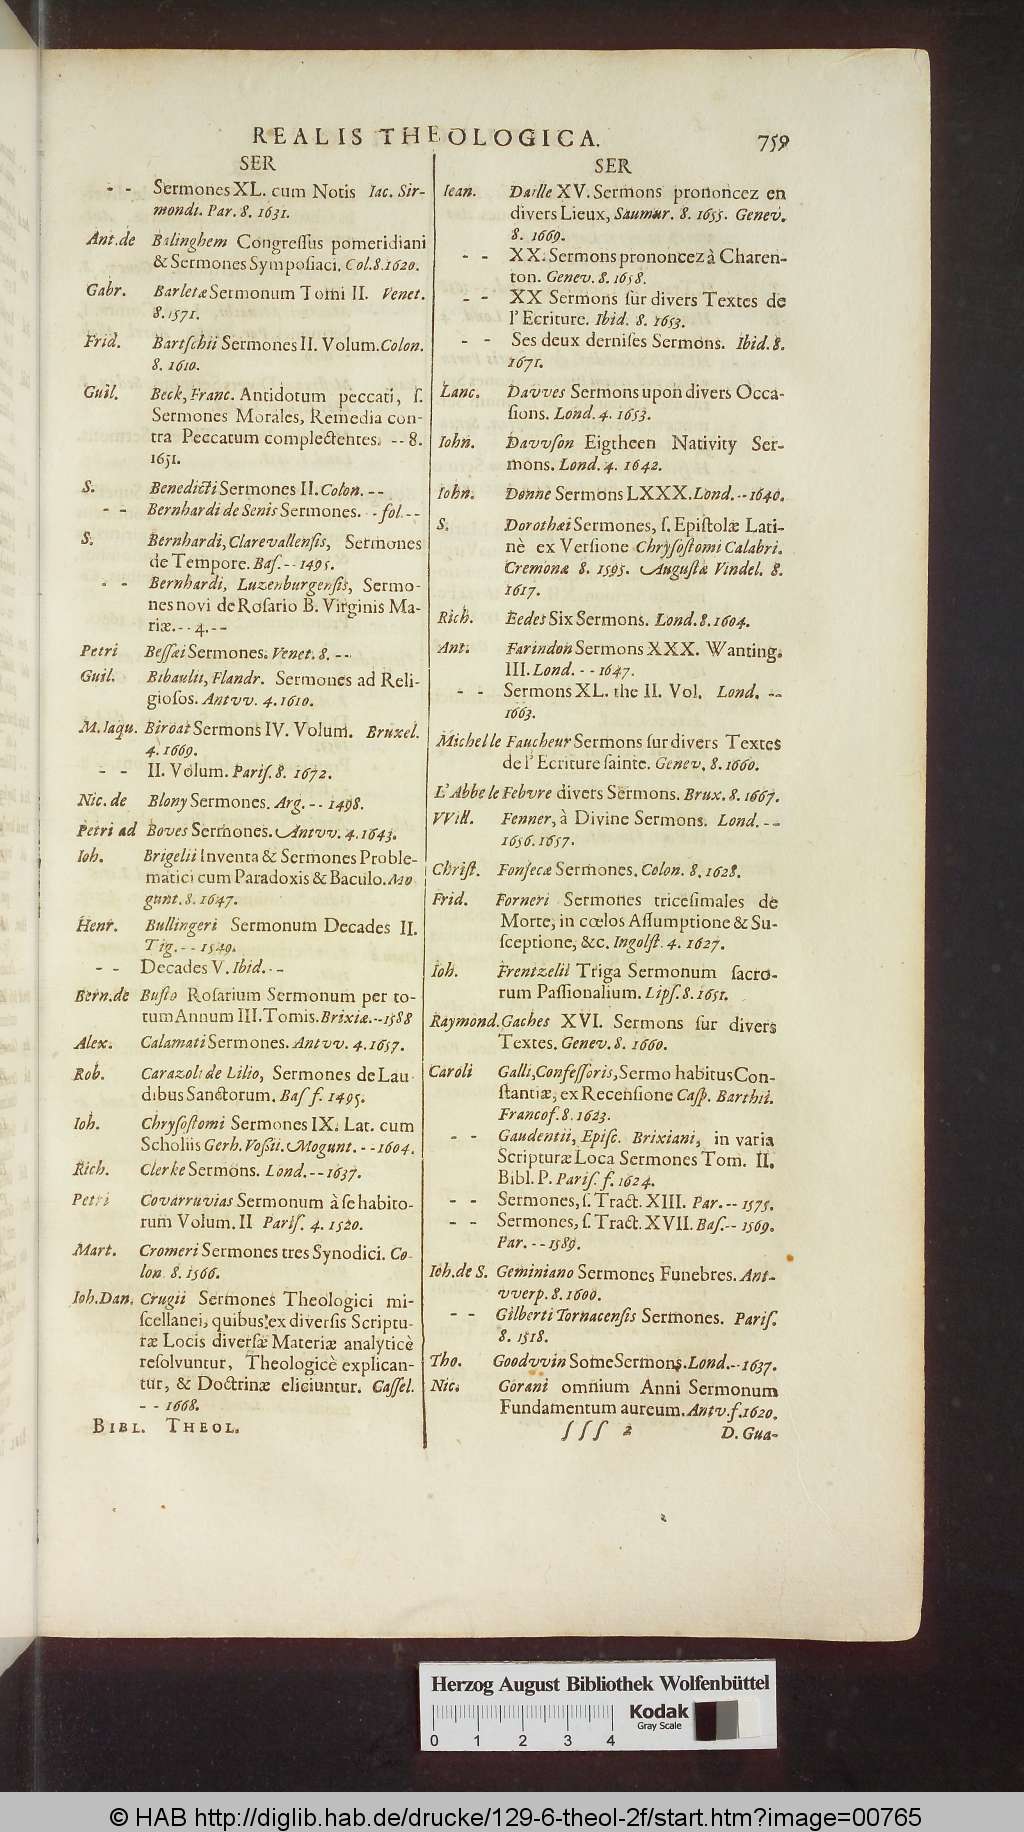 REALIS THEOLOGICA. 759
SER
- - Sermones XL. cum Notis Iac. Sir-
mondi. Par. 8. 1631.
Ant. de Balinghem Congreſſus pomeridiani
& Sermones Sympoſiaci. Col. 8. 1620.
Gabr. Barletæ Sermonum Tomi II. Venet.
8. 1571.
Frid. Bartſchii Sermones II. Volum. Colon.
8. 1610.
Guil. Beck, Franc. Antidotum peccati, ſ.
Sermones Morales, Remedia con-
tra Peccatum complectentes. -- 8.
1651.
S. Benedicti Sermones II. Colon. --
- - Bernhardi de Senis Sermones. - fol. --
S. Bernhardi, Clarevallenſis, Sermones
de Tempore. Baſ. -- 1495.
- - Bernhardi, Luzenburgenſis, Sermo-
nes novi de Roſario B. Virginis Ma-
riæ. -- 4. --
Petri Beſſæi Sermones. Venet. 8. --
Guil. Bibaulti, Flandr. Sermones ad Reli-
gioſos. Antvv. 4. 1610.
M. Iaqu. Biroat Sermons IV. Volum. Bruxel.
4. 1669.
- - II. Volum. Pariſ. 8. 1672.
Nic. de Blony Sermones. Arg. -- 1498.
Petri ad Boves Sermones. Antvv. 4. 1643.
Ioh. Brigelii Inventa & Sermones Proble-
matici cum Paradoxis & Baculo. Mo
gunt. 8. 1647.
Henr. Bullingeri Sermonum Decades II.
Tig. -- 1549.
- - Decades V. Ibid. --
Bern. de Buſto Roſarium Sermonum per to-
tum Annum III. Tomis. Brixiæ. -- 1588
Alex. Calamati Sermones. Antvv. 4. 1657.
Rob. Carazoli de Lilio, Sermones de Lau
dibus Sanctorum. Baſ f. 1495.
Ioh. Chryſoſtomi Sermones IX. Lat. cum
Scholiis Gerh. Voſſii. Mogunt. -- 1604.
Rich. Clerke Sermons. Lond. -- 1637.
Petri Covarruvias Sermonum à ſe habito-
rum Volum. II Pariſ. 4. 1520.
Mart. Cromeri Sermones tres Synodici. Co-
lon 8. 1566.
Ioh. Dan. Crugii Sermones Theologici mi-
ſcellanei, quibus ex diverſis Scriptu-
ræ Locis diverſæ Materiæ analyticè
reſolvuntur, Theologicè explican-
tur, & Doctrinæ eliciuntur. Caſſel.
-- 1668.
BIBL. THEOL.
SER
Iean. Daille XV. Sermons prononcez en
divers Lieux, Saumur. 8. 1655. Genev.
8. 1669.
- - XX. Sermons prononcez à Charen-
ton. Genev. 8. 1658.
- - XX Sermons ſur divers Textes de
l' Ecriture. Ibid. 8. 1653.
- - Ses deux derniſes Sermons. Ibid. 8.
1671.
Lanc. Davves Sermons upon divers Occa-
ſions. Lond. 4. 1653.
Iohn. Davvſon Eigtheen Nativity Ser-
mons. Lond. 4. 1642.
Iohn. Donne Sermons LXXX. Lond. -- 1640.
S. Dorothæi Sermones, ſ. Epiſtolæ Lati-
nè ex Verſione Chryſoſtomi Calabri.
Cremonæ 8. 1595. Auguſtæ Vindel. 8.
1617.
Rich. Eedes Six Sermons. Lond. 8. 1604.
Ant. Farindon Sermons XXX. Wanting.
III. Lond. -- 1647.
- - Sermons XL. the II. Vol. Lond. --
1663.
Michel le Faucheur Sermons ſur divers Textes
de l' Ecriture ſainte. Genev. 8. 1660.
L'Abbe le Febvre divers Sermons. Brux. 8. 1667.
VVill. Fenner, à Divine Sermons. Lond. --
1656. 1657.
Chriſt. Fonſecæ Sermones. Colon. 8. 1628.
Frid. Forneri Sermones triceſimales de
Morte, in cœlos Aſſumptione & Su-
ſceptione, &c. Ingolſt. 4. 1627.
Ioh. Frentzelii Triga Sermonum ſacro-
rum Paſſionalium. Lipſ. 8. 1651.
Raymond. Gaches XVI. Sermons ſur divers
Textes. Genev. 8. 1660.
Caroli Galli, Confeſſoris, Sermo habitus Con-
ſtantiæ, ex Recenſione Caſp. Barthii.
Francof. 8. 1623.
- - Gaudentii, Epiſc. Brixiani, in varia
Scripturæ Loca Sermones Tom. II.
Bibl. P. Pariſ. f. 1624.
- - Sermones, ſ. Tract. XIII. Par. -- 1575.
- - Sermones, ſ. Tract. XVII. Baſ. -- 1569.
Par. -- 1589.
Ioh. de S. Geminiano Sermones Funebres. Ant-
vverp. 8. 1600.
- - Gilberti Tornacenſis Sermones. Pariſ.
8. 1518.
Tho. Goodvvin Some Sermons. Lond. -- 1637.
Nic. Gorani omnium Anni Sermonum
Fundamentum aureum. Antv. f. 1620.
ſſſ 2 D. Gua-
Herzog August Bibliothek Wolfenbüttel
0 1 2 3 4
Kodak
Gray Scale
© HAB http://diglib.hab.de/drucke/129-6-theol-2f/start.htm?image=00765